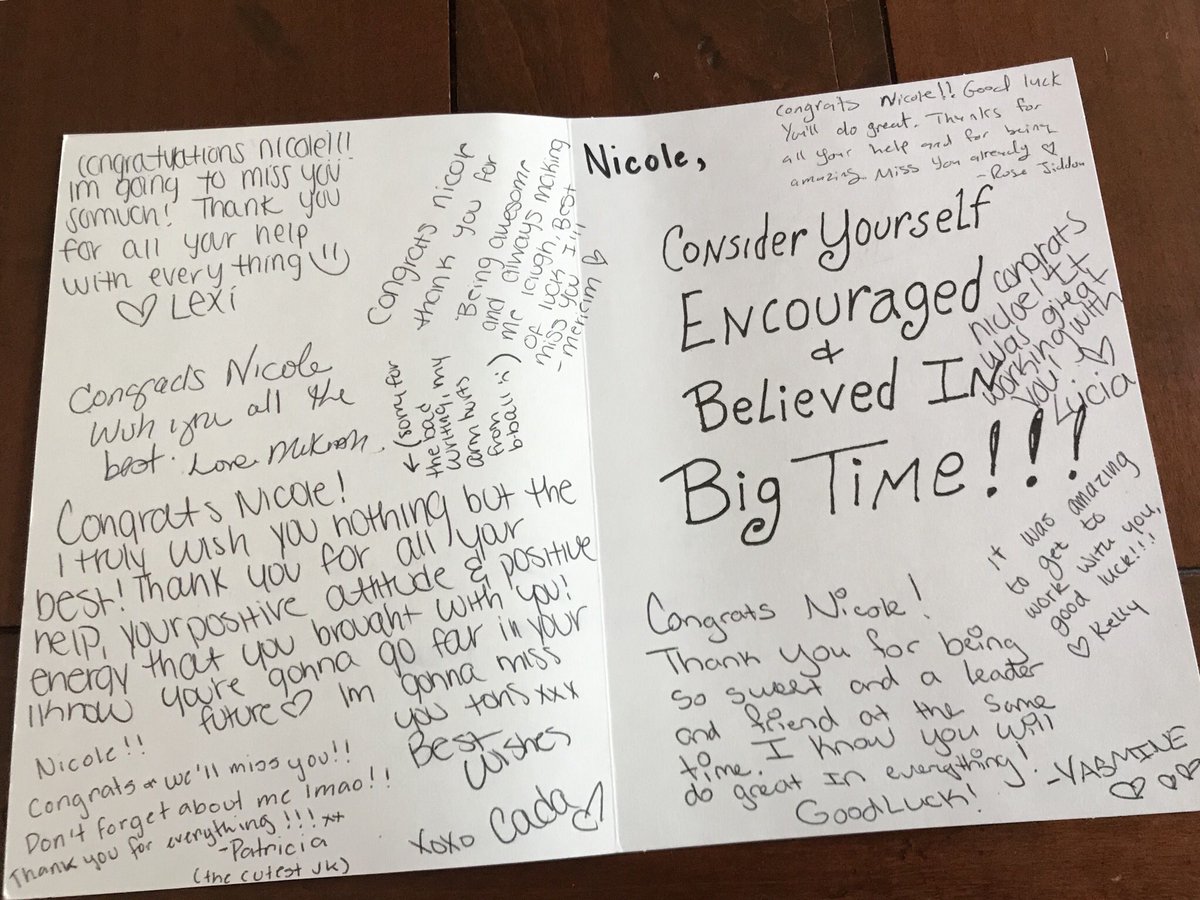 congratuations nicole!!!
im going to miss you
somuch! Thank you
for all your help
with everything
♡ Lexi
Congrats nicole
thank you for
Being awesome
and always making
me laugh. Best
of luck I'll
miss you!!
-mericim ♡
← (sorry for
the bad
writing, my
arm hurts
from
b-ball :( )
Congrads Nicole
Wish you all the
best. Love
Congrats Nicole!
I truly wish you nothing but the
best! Thank you for all your
help, your positive attitude & positive
energy that you brought with you!
I know you're gonna go far in your
future ♡ Im gonna miss
you tons xxx
Best
Wishes
xoxo Cada ♡
Nicole!!
Congrats & we'll miss you!!
Don't forget about me lmao!!
Thank you for everything!!! xx
-Patricia
(the cutest jk)
Nicole,
Congrats Nicole!! Good luck
You'll do great. Thanks for
all your help and for being
amazing. Miss you already ♡
-Rose Jiddou
Consider Yourself
Encouraged
&
Believed In
Big Time!!!
congrats
nicole! It
was great
working with
you! ♡
Lycia
it was amazing
to get to
work with you,
good luck!!!
♡ Kelly
Congrats Nicole!
Thank you for being
so sweet and a leader
and friend at the same
time. I know you will
do great in everything!
Good Luck!
-YASMINE
♡ ♡♡